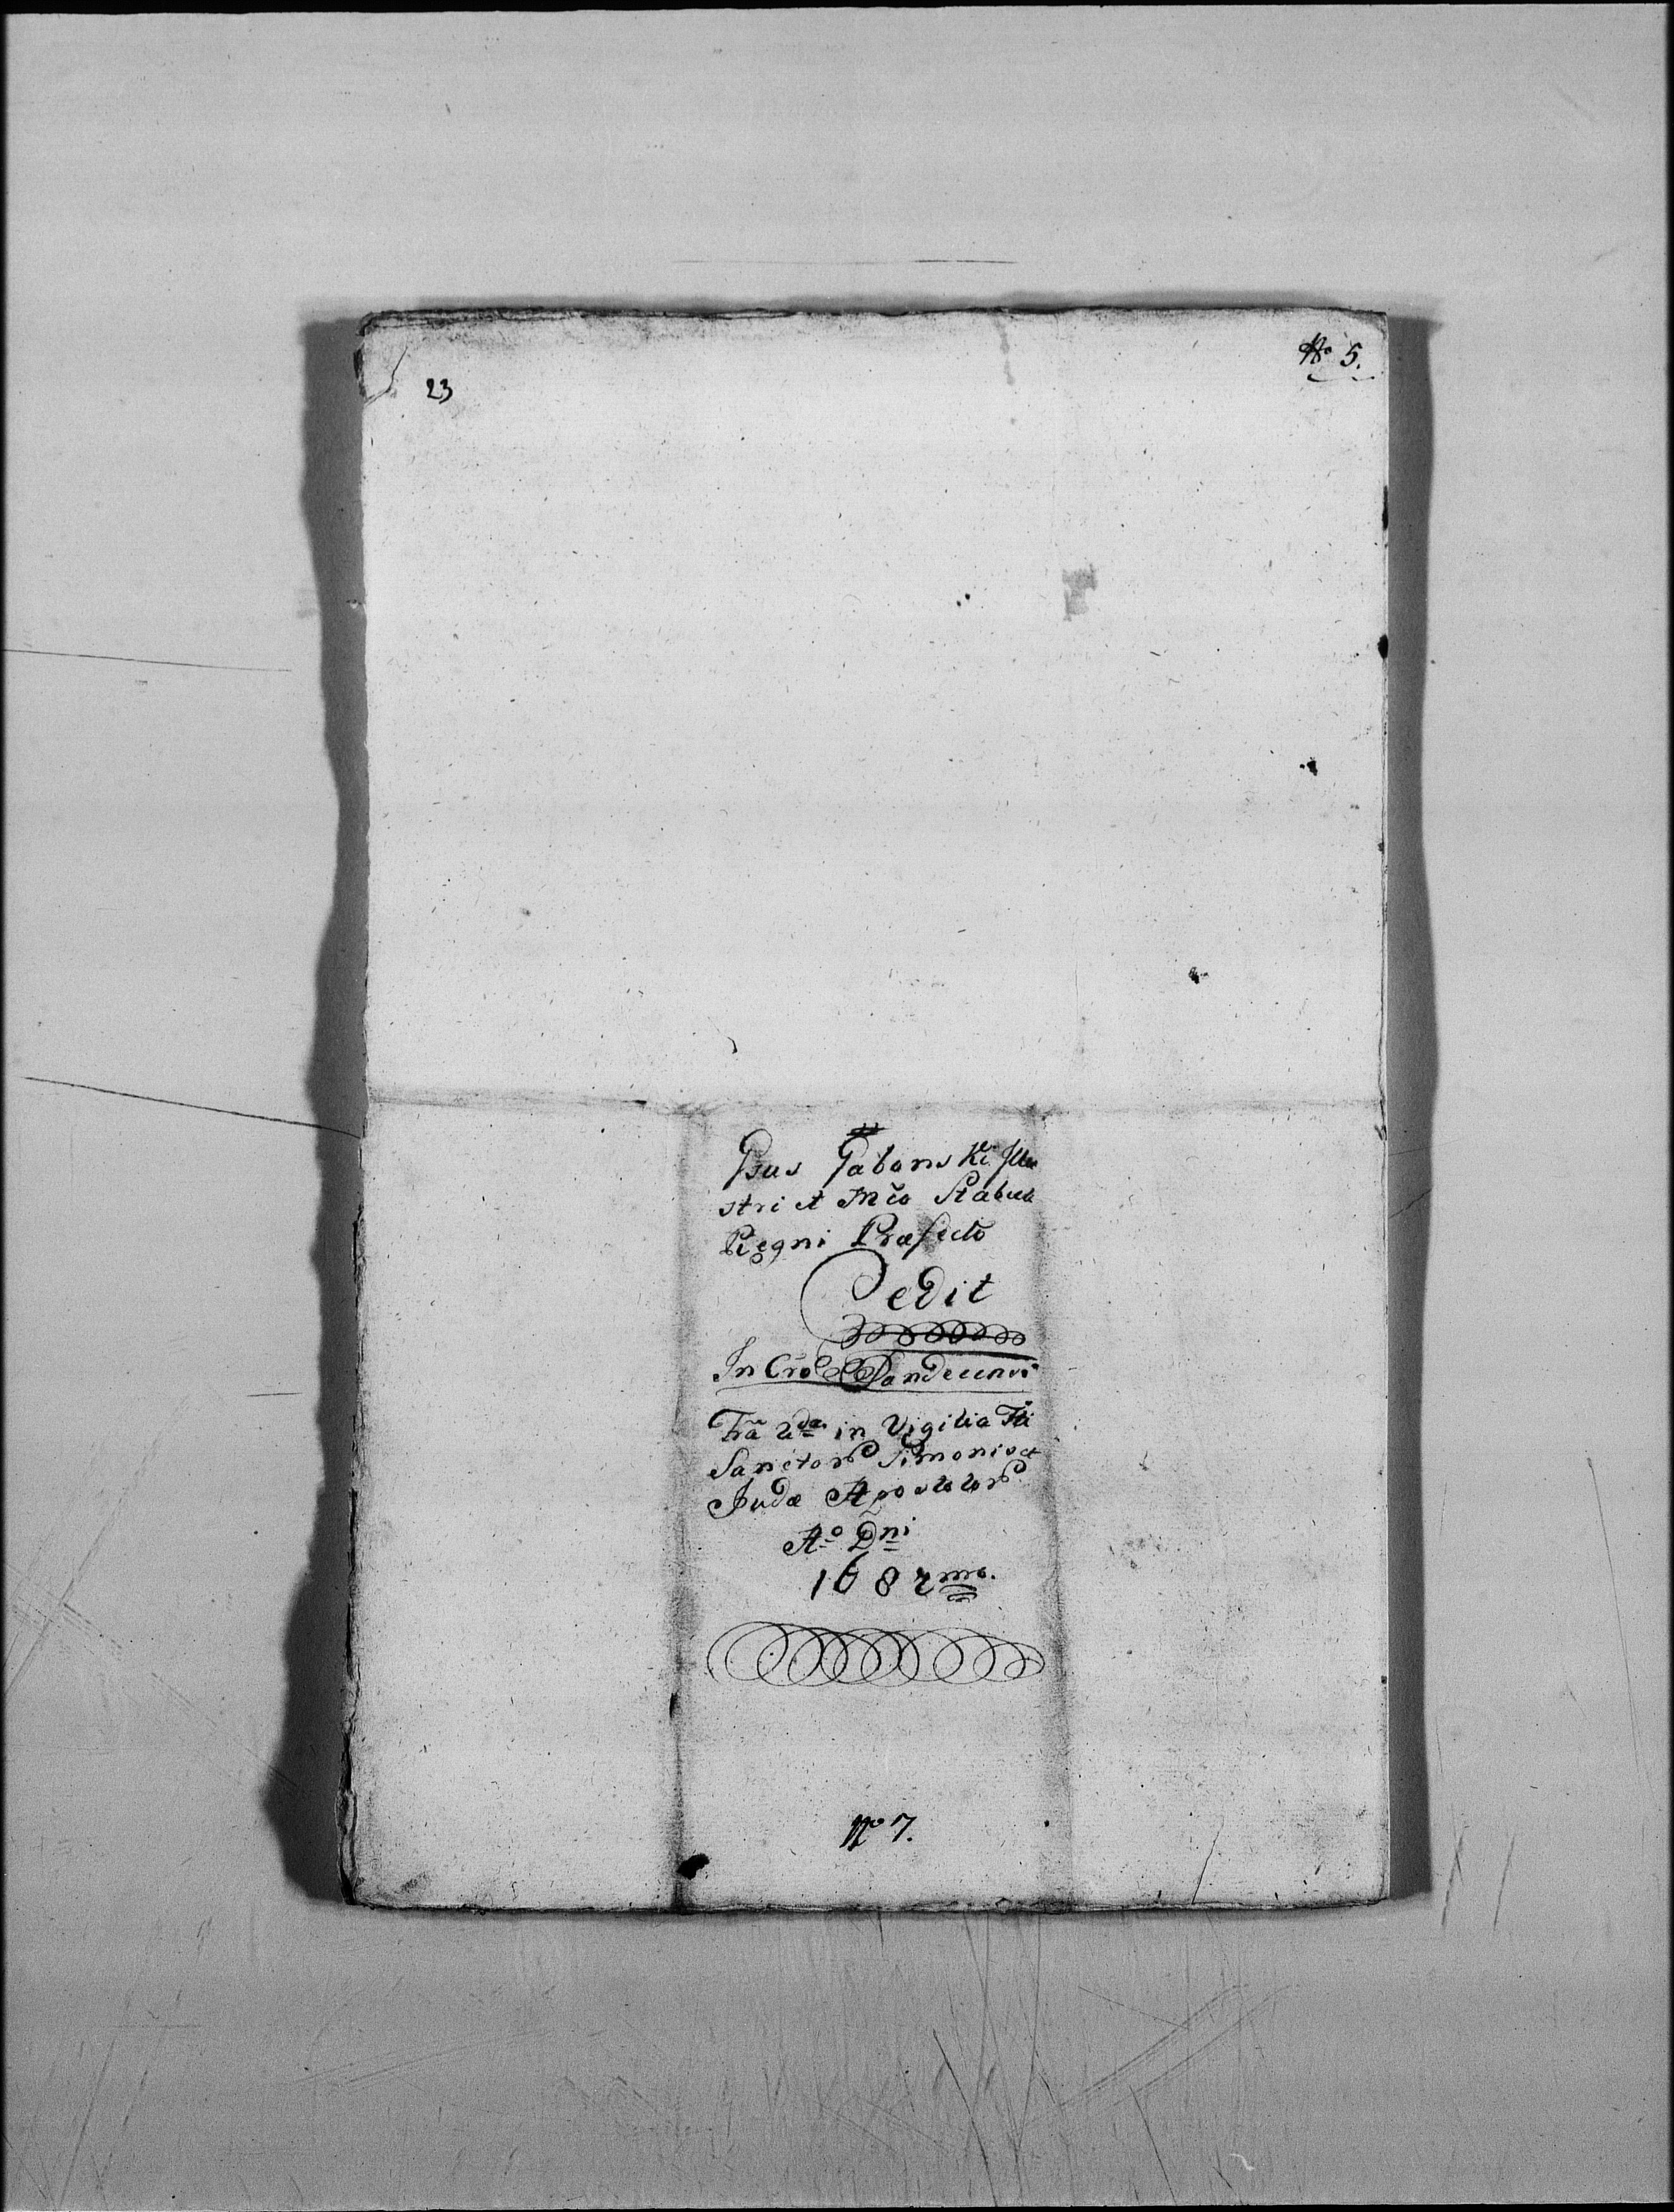 No 5.
23
Gsus Jabonski Illu
stri et Mco Stabuli
Regni Præfecto
Cedit
In Cro Sandecensi
Fra 2da in Vigilia Fti
Sanctor Simonis et
Judæ Apostolor
Ao Dni
1682mo.
No 7.